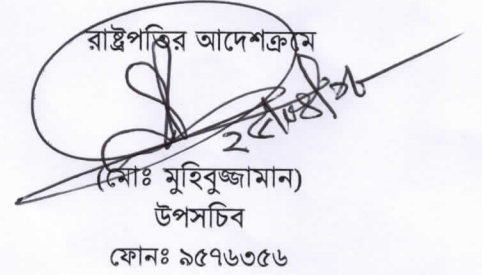 রাষ্ট্রপতির আদেশক্রমে
(মোঃ মুহিবুজ্জামান)
উপসচিব
ফোনঃ ৯৫৭৬৩৫৬